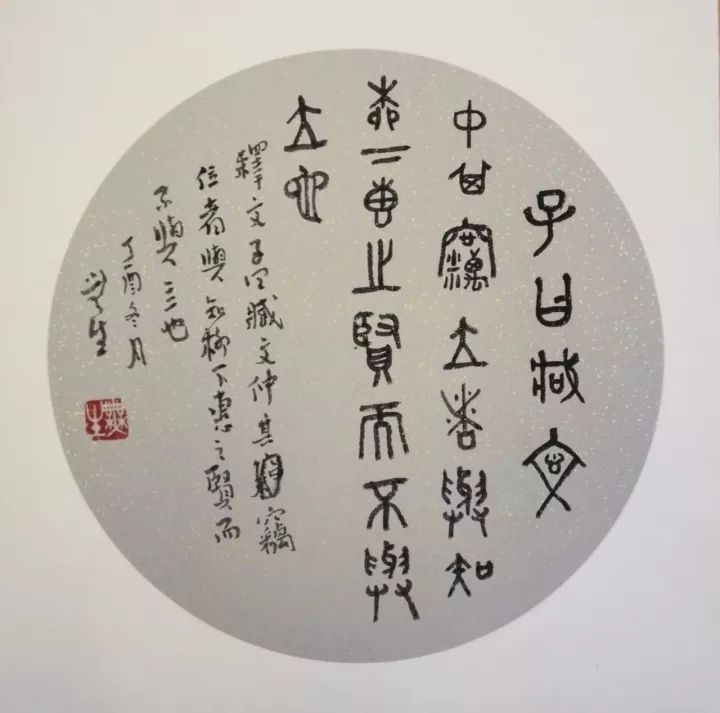 子曰臧文
中其竊立者與知
柳下惠之賢而不與
立也
釋文子曰臧文仲其竊
位者與知柳下惠之賢而
不與立也
丁酉冬月
生